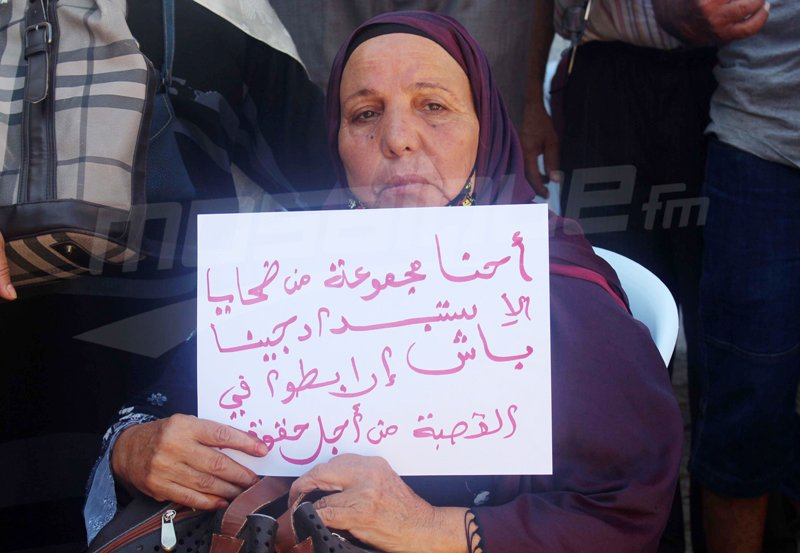 أحنا مجموعة من ضحايا
الإستبداد جينا
باش إرابطوا في
القصبة من أجل حقوق
mosaiquefm